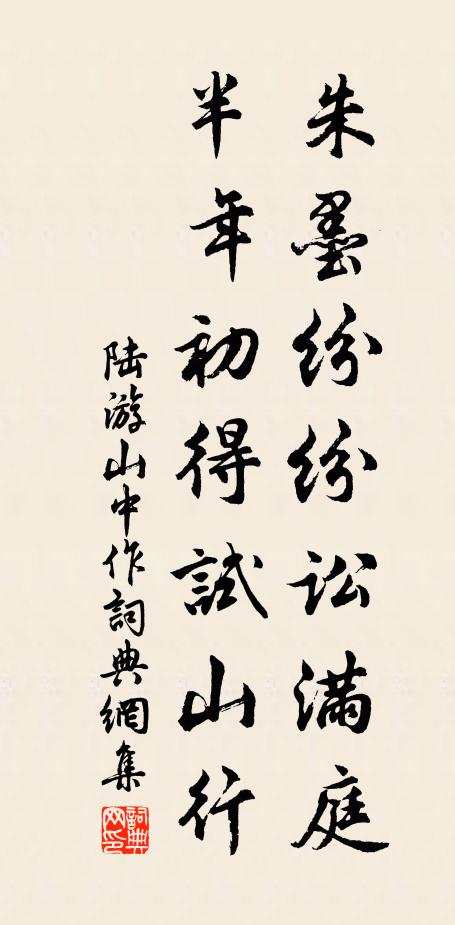 朱墨紛紛訟满庭
半年初得試山行
陆游山中作詞典網集
詞典网印